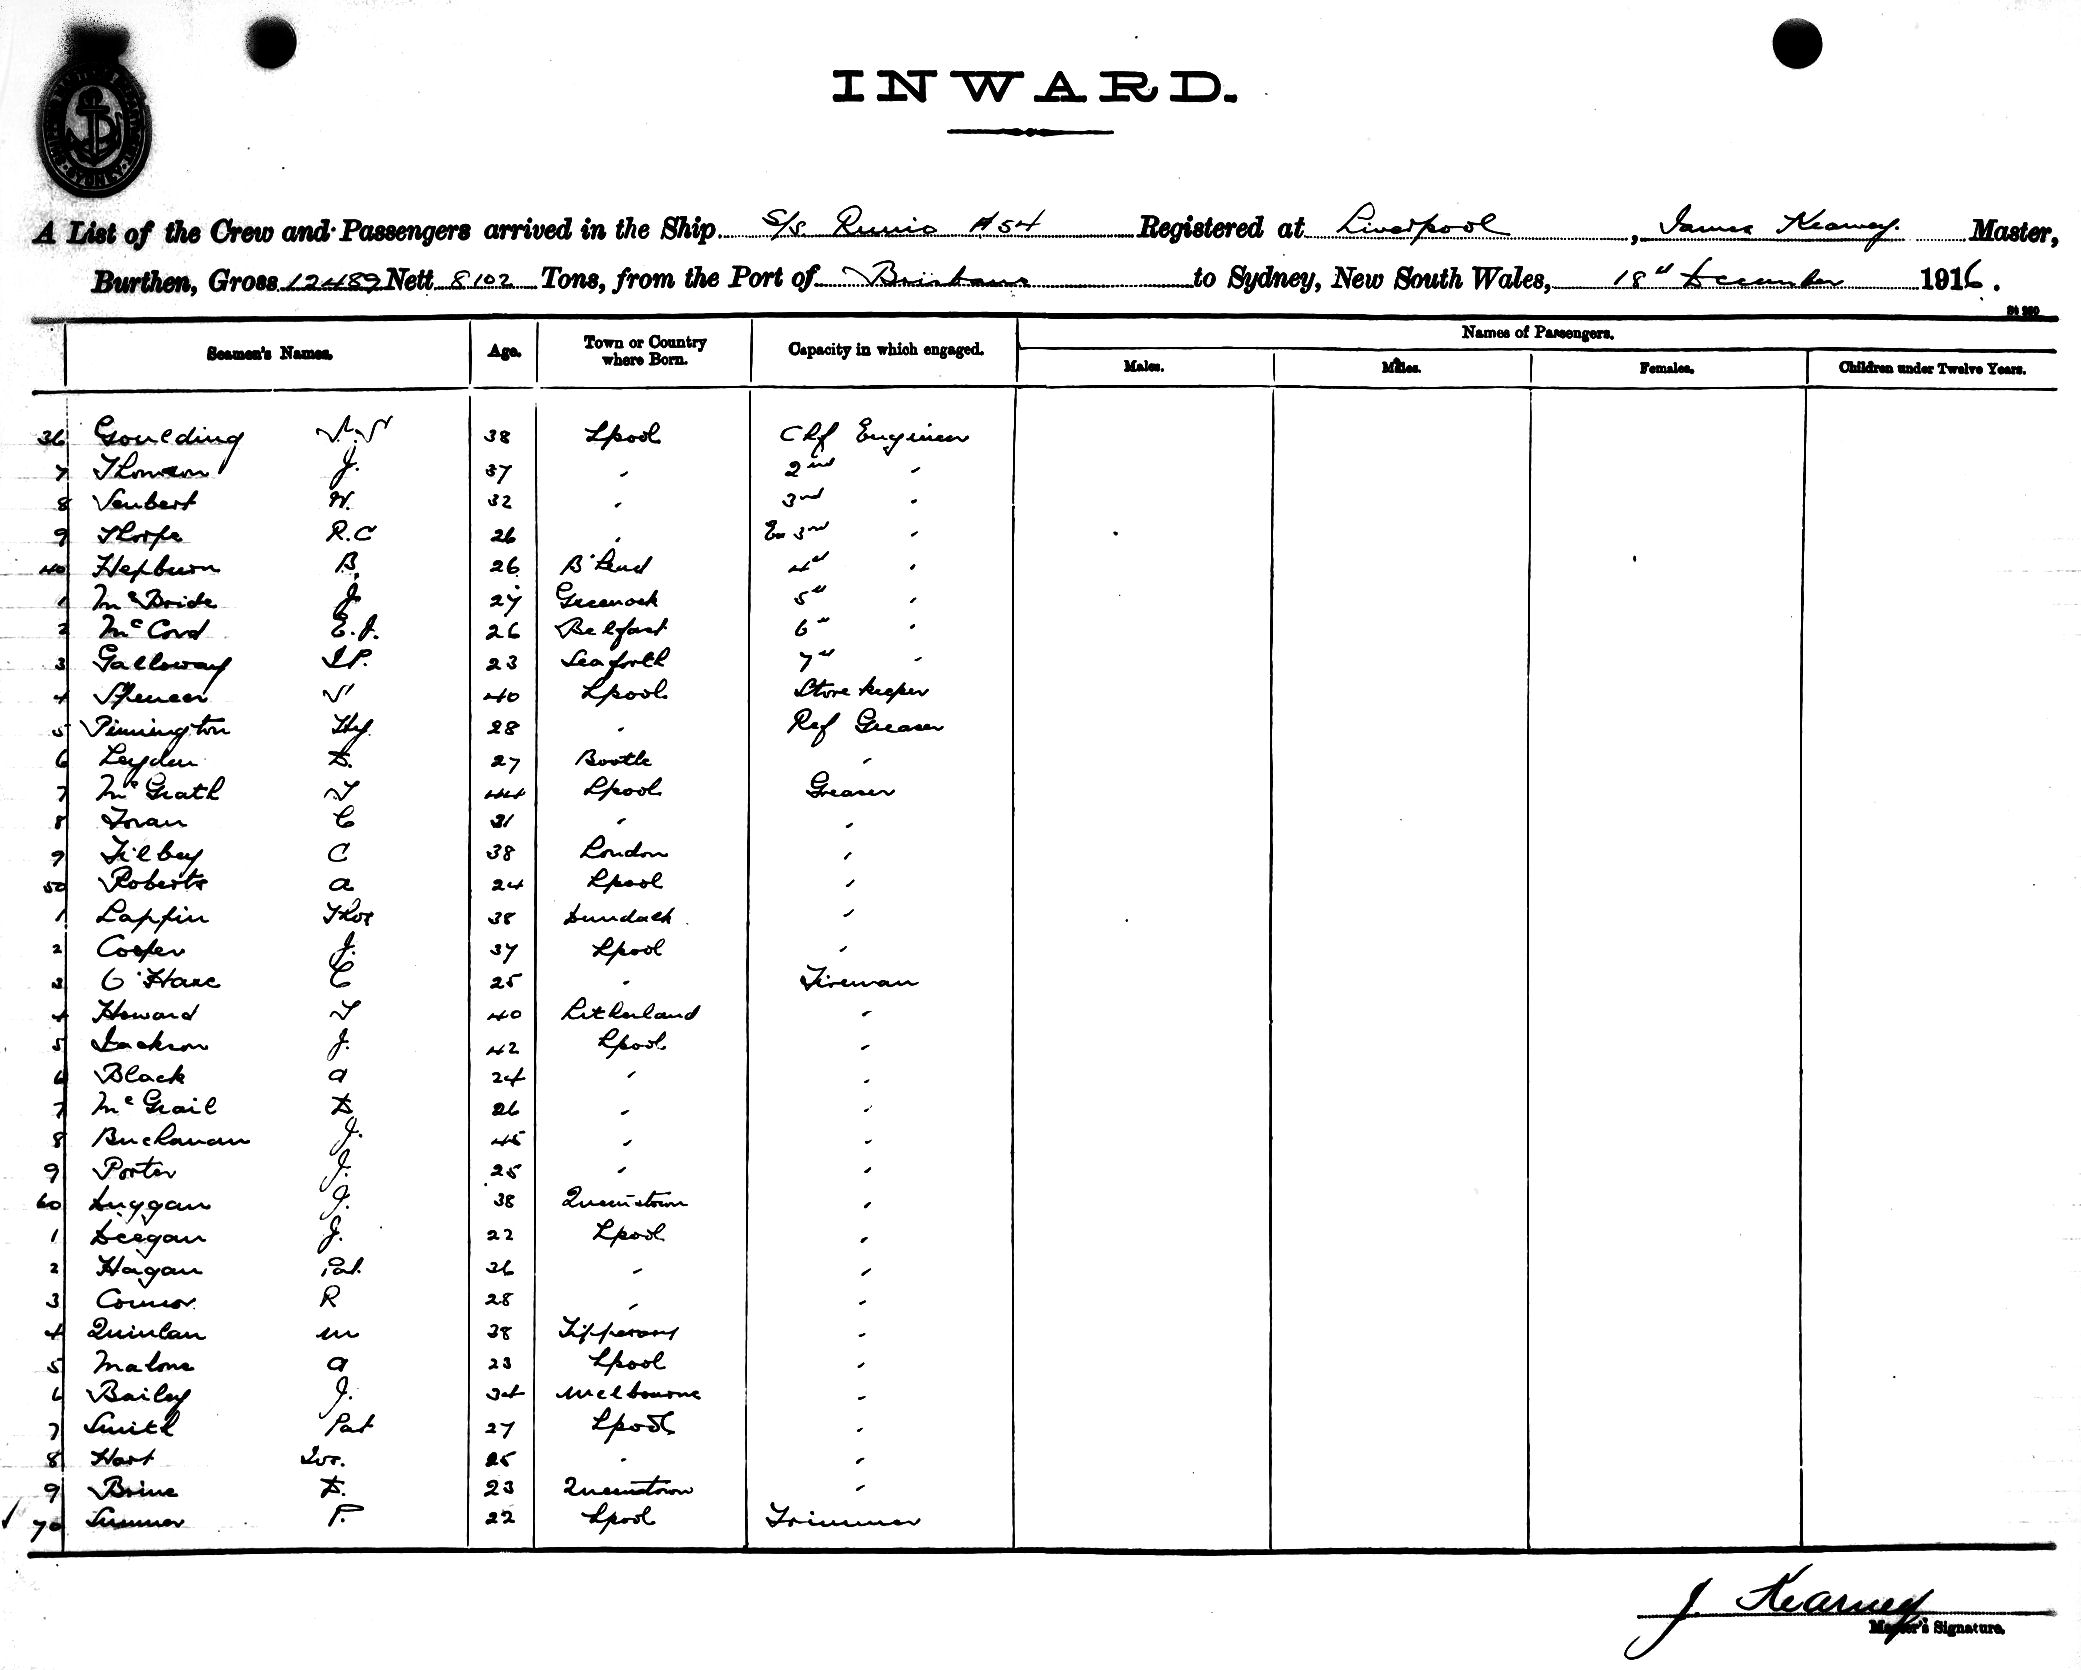 INWARD.
SYDNEY
A List of the Crew and Passengers arrived in the Ship S/S. Runic A54 Registered at Liverpool, James Kearney. Master,
Burthen, Gross 12489 Nett 8102 Tons, from the Port of Brisbane to Sydney, New South Wales, 18th December 1916.
Seamen's Names. Age. Town or Country where Born. Capacity in which engaged. Names of Passengers.
Males. Males. Females. Children under Twelve Years.
36 Goulding 38 Lpool Chf Engineer
7 Thomson J. 37 " 2nd "
8 Venbert W. 32 " 3rd "
9 Thorpe R.C 26 " Ex 3rd "
40 Hepburn B. 26 B'head 4th "
1 McBride J. 27 Greenock 5th "
2 McCord E.J. 26 Belfast 6th "
3 Galloway J.P. 23 Seaforth 7th "
4 Spencer W 40 Lpool Storekeeper
5 Pinnington Hy 28 " Ref Greaser
6 Leyden D. 27 Bootle "
7 McGrath T 44 Lpool Greaser
8 Foran C 31 " "
9 Filbey C 38 London "
50 Roberts A 24 Lpool "
1 Lappin Thos 38 Dundalk "
2 Cooper J. 37 Lpool "
3 O'Hare C 25 " Fireman
4 Howard T 40 Litherland "
5 Jackson J. 42 Lpool "
6 Black A 24 " "
7 McGrail D 26 " "
8 Buchanan J. 45 " "
9 Porter J. 25 " "
60 Duggan J. 38 Queenstown "
1 Deegan J. 22 Lpool "
2 Hagan Pat. 36 " "
3 Connor R 28 " "
4 Quinlan M 38 Tipperary "
5 Malone A 23 Lpool "
6 Bailey J. 34 Melbourne "
7 Smith Pat 27 Lpool "
8 Hart Jos. 25 " "
9 Brine D. 23 Queenstown "
70 Sumner P. 22 Lpool Trimmer
J. Kearney
Master's Signature.